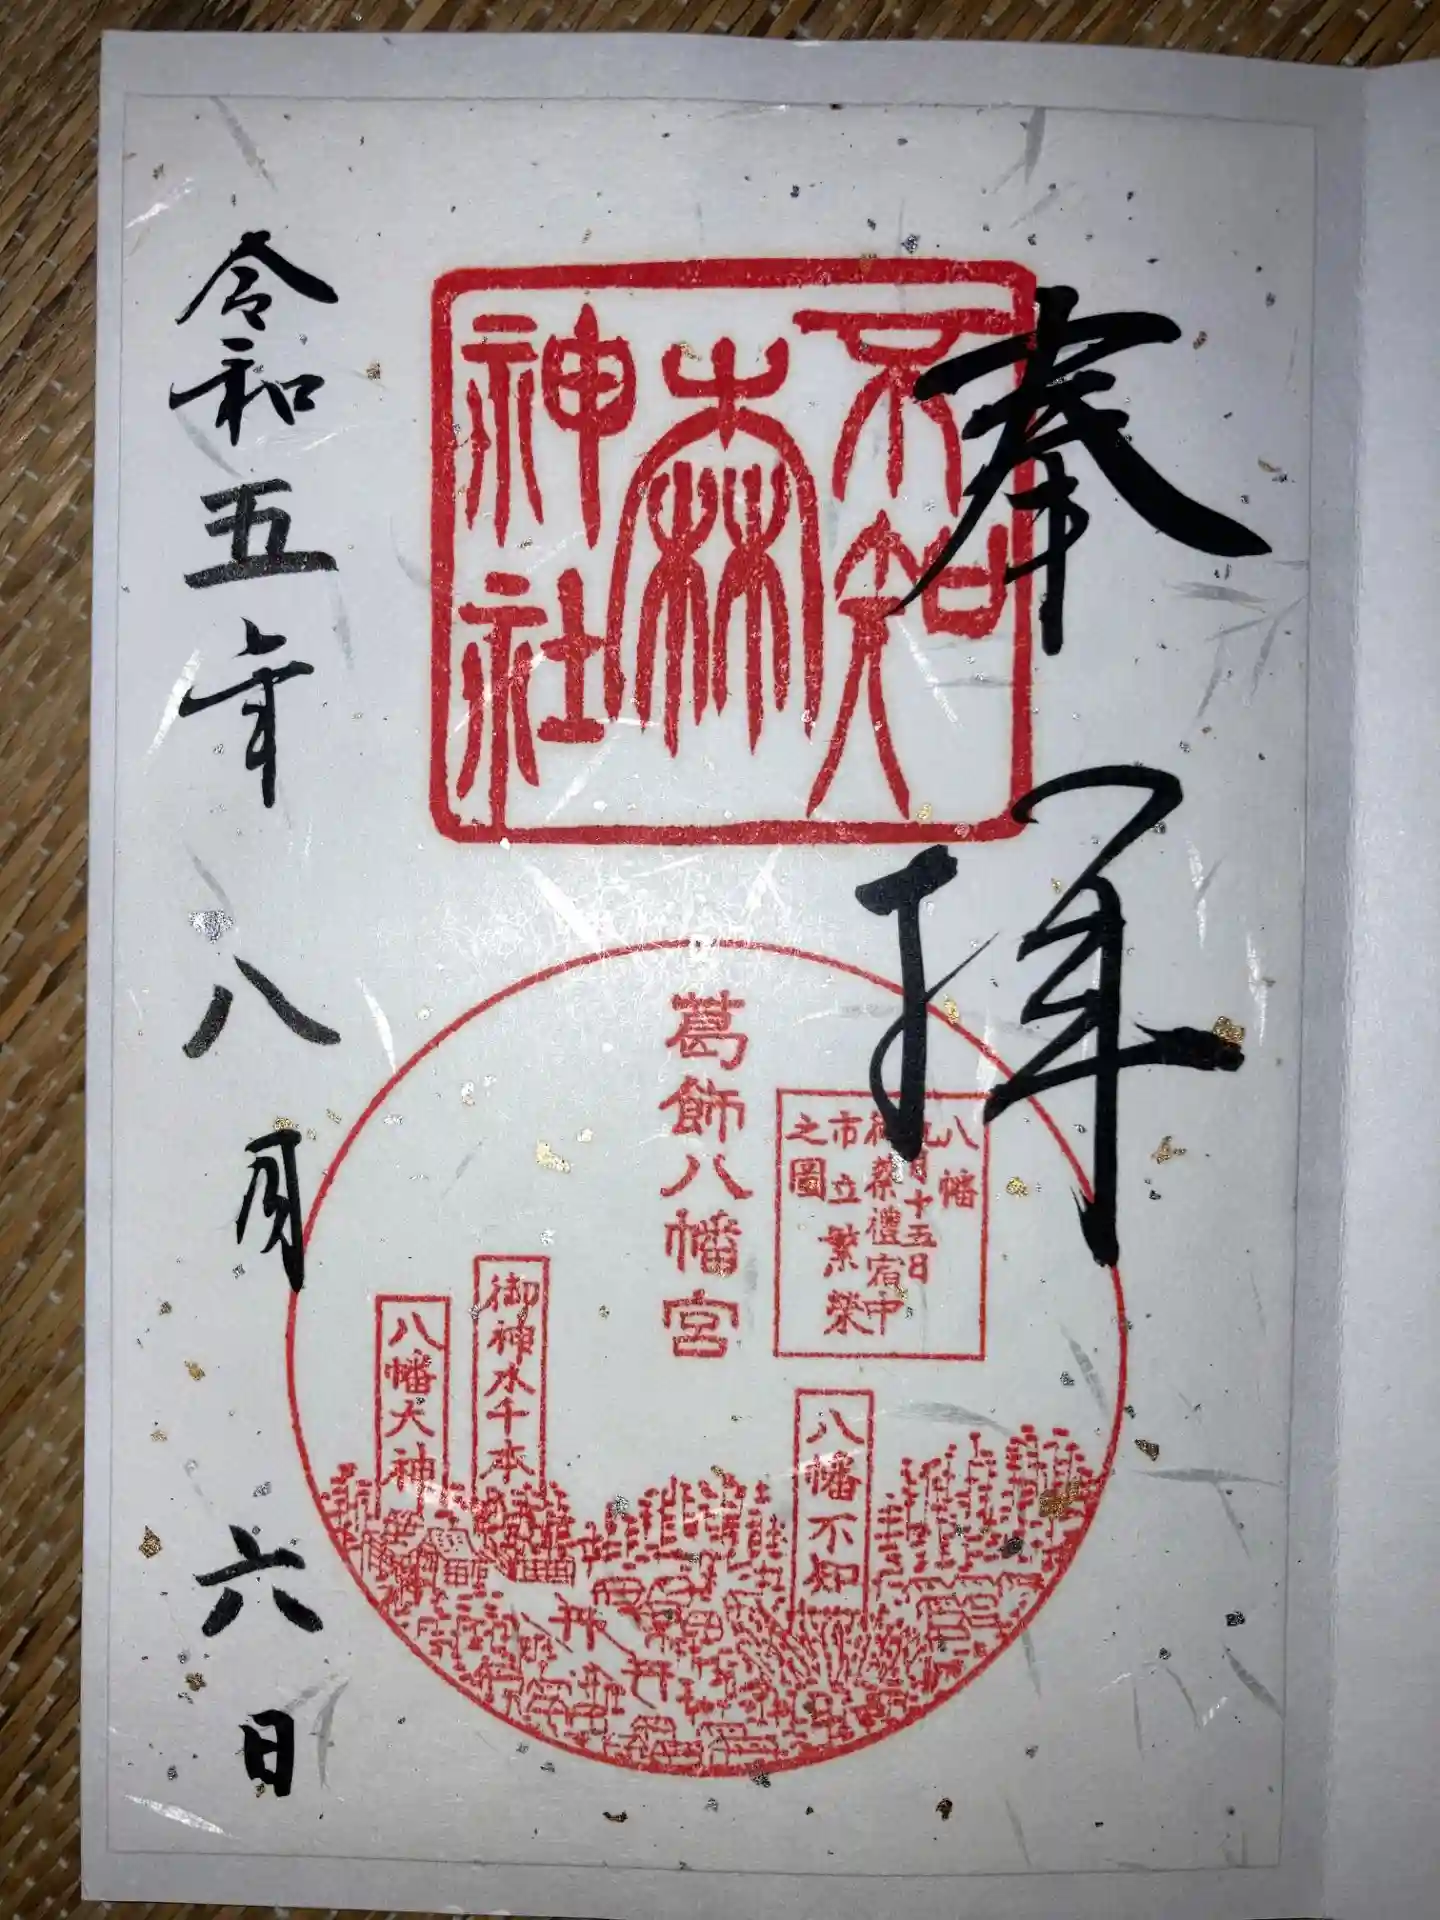 奉拝
不知
森
神社
葛飾八幡宮
八幡
九月十五日
御祭禮宿中
市立繁栄
之圖
八幡不知
御神水千本
八幡大神
令和五年八月六日